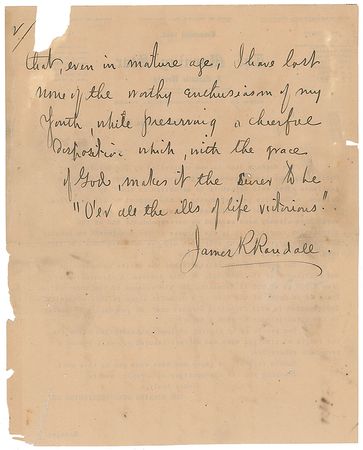 v/
that, even in mature age, I have lost
none of the worthy enthusiasm of my
Youth, while preserving a cheerful
disposition which, with the grace
of God, makes it the surer to be
"O'er all the ills of life victorious."
James R Randall.